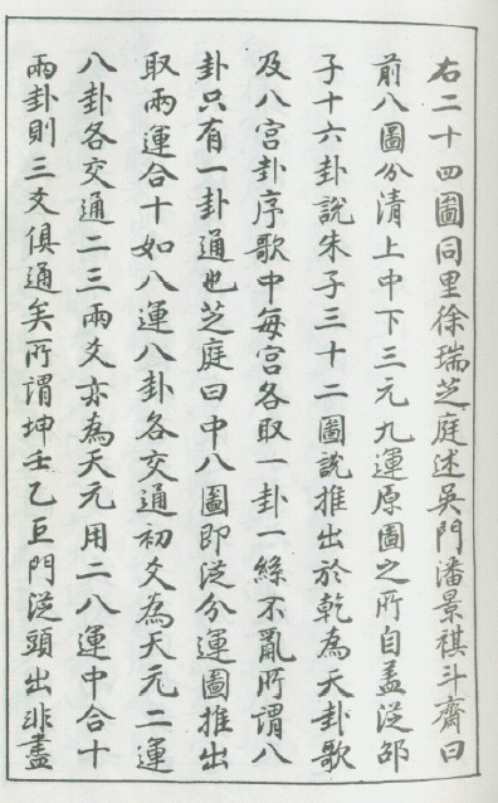 右二十四圖同里徐瑞芝庭述吳門潘景祺斗齋曰
前八圖分清上中下三元九運原圖之所自盖從邵
子十六卦說朱子三十二圖說推出於乾為天卦歌
及八宮卦序歌中每宮各取一卦一絲不亂所謂八
卦只有一卦通也芝庭曰中八圖即從分運圖推出
取兩運合十如八運八卦各交通初爻為天元二運
八卦各交通二三兩爻亦為天元用二八運中合十
兩卦則三爻俱通矣所謂坤壬乙巨門從頭出非盡